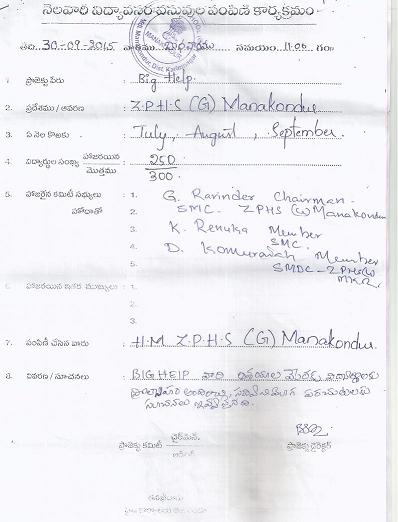 నెలవారి విద్యావసర వస్తువుల పంపిణి కార్యక్రమం
తేది 30-09-2015 వారము బుధవారము సమయం 11:00 గం
1. ప్రాజెక్టు పేరు : Big Help.
2. ప్రదేశము / ఆవరణ : Z.P.H.S (G) Manakondur
3. ఏ నెల కొరకు : July, August, September.
4. విద్యార్థుల సంఖ్య హాజరయిన : 250
మొత్తము 300
5. హాజరైన కమిటీ సభ్యులు : 1. G. Ravinder Chairman
హోదాతో 2. SMC- ZPHS Manakondur
3. K. Renuka Member
4. SMC.
D. Komuraiah Member
5. SMDC-ZPHS
MKR.
6. హాజరయిన ఇతర ముఖ్యులు : 1.
2.
3.
7. పంపిణీ చేసిన వారు : H.M Z.P.H.S (G) Manakondur.
8. వివరణ / సూచనలు : BIG HELP వారి
చైర్మన్
ప్రాజెక్టు కమిటి
ప్రాజెక్టు డైరెక్టర్